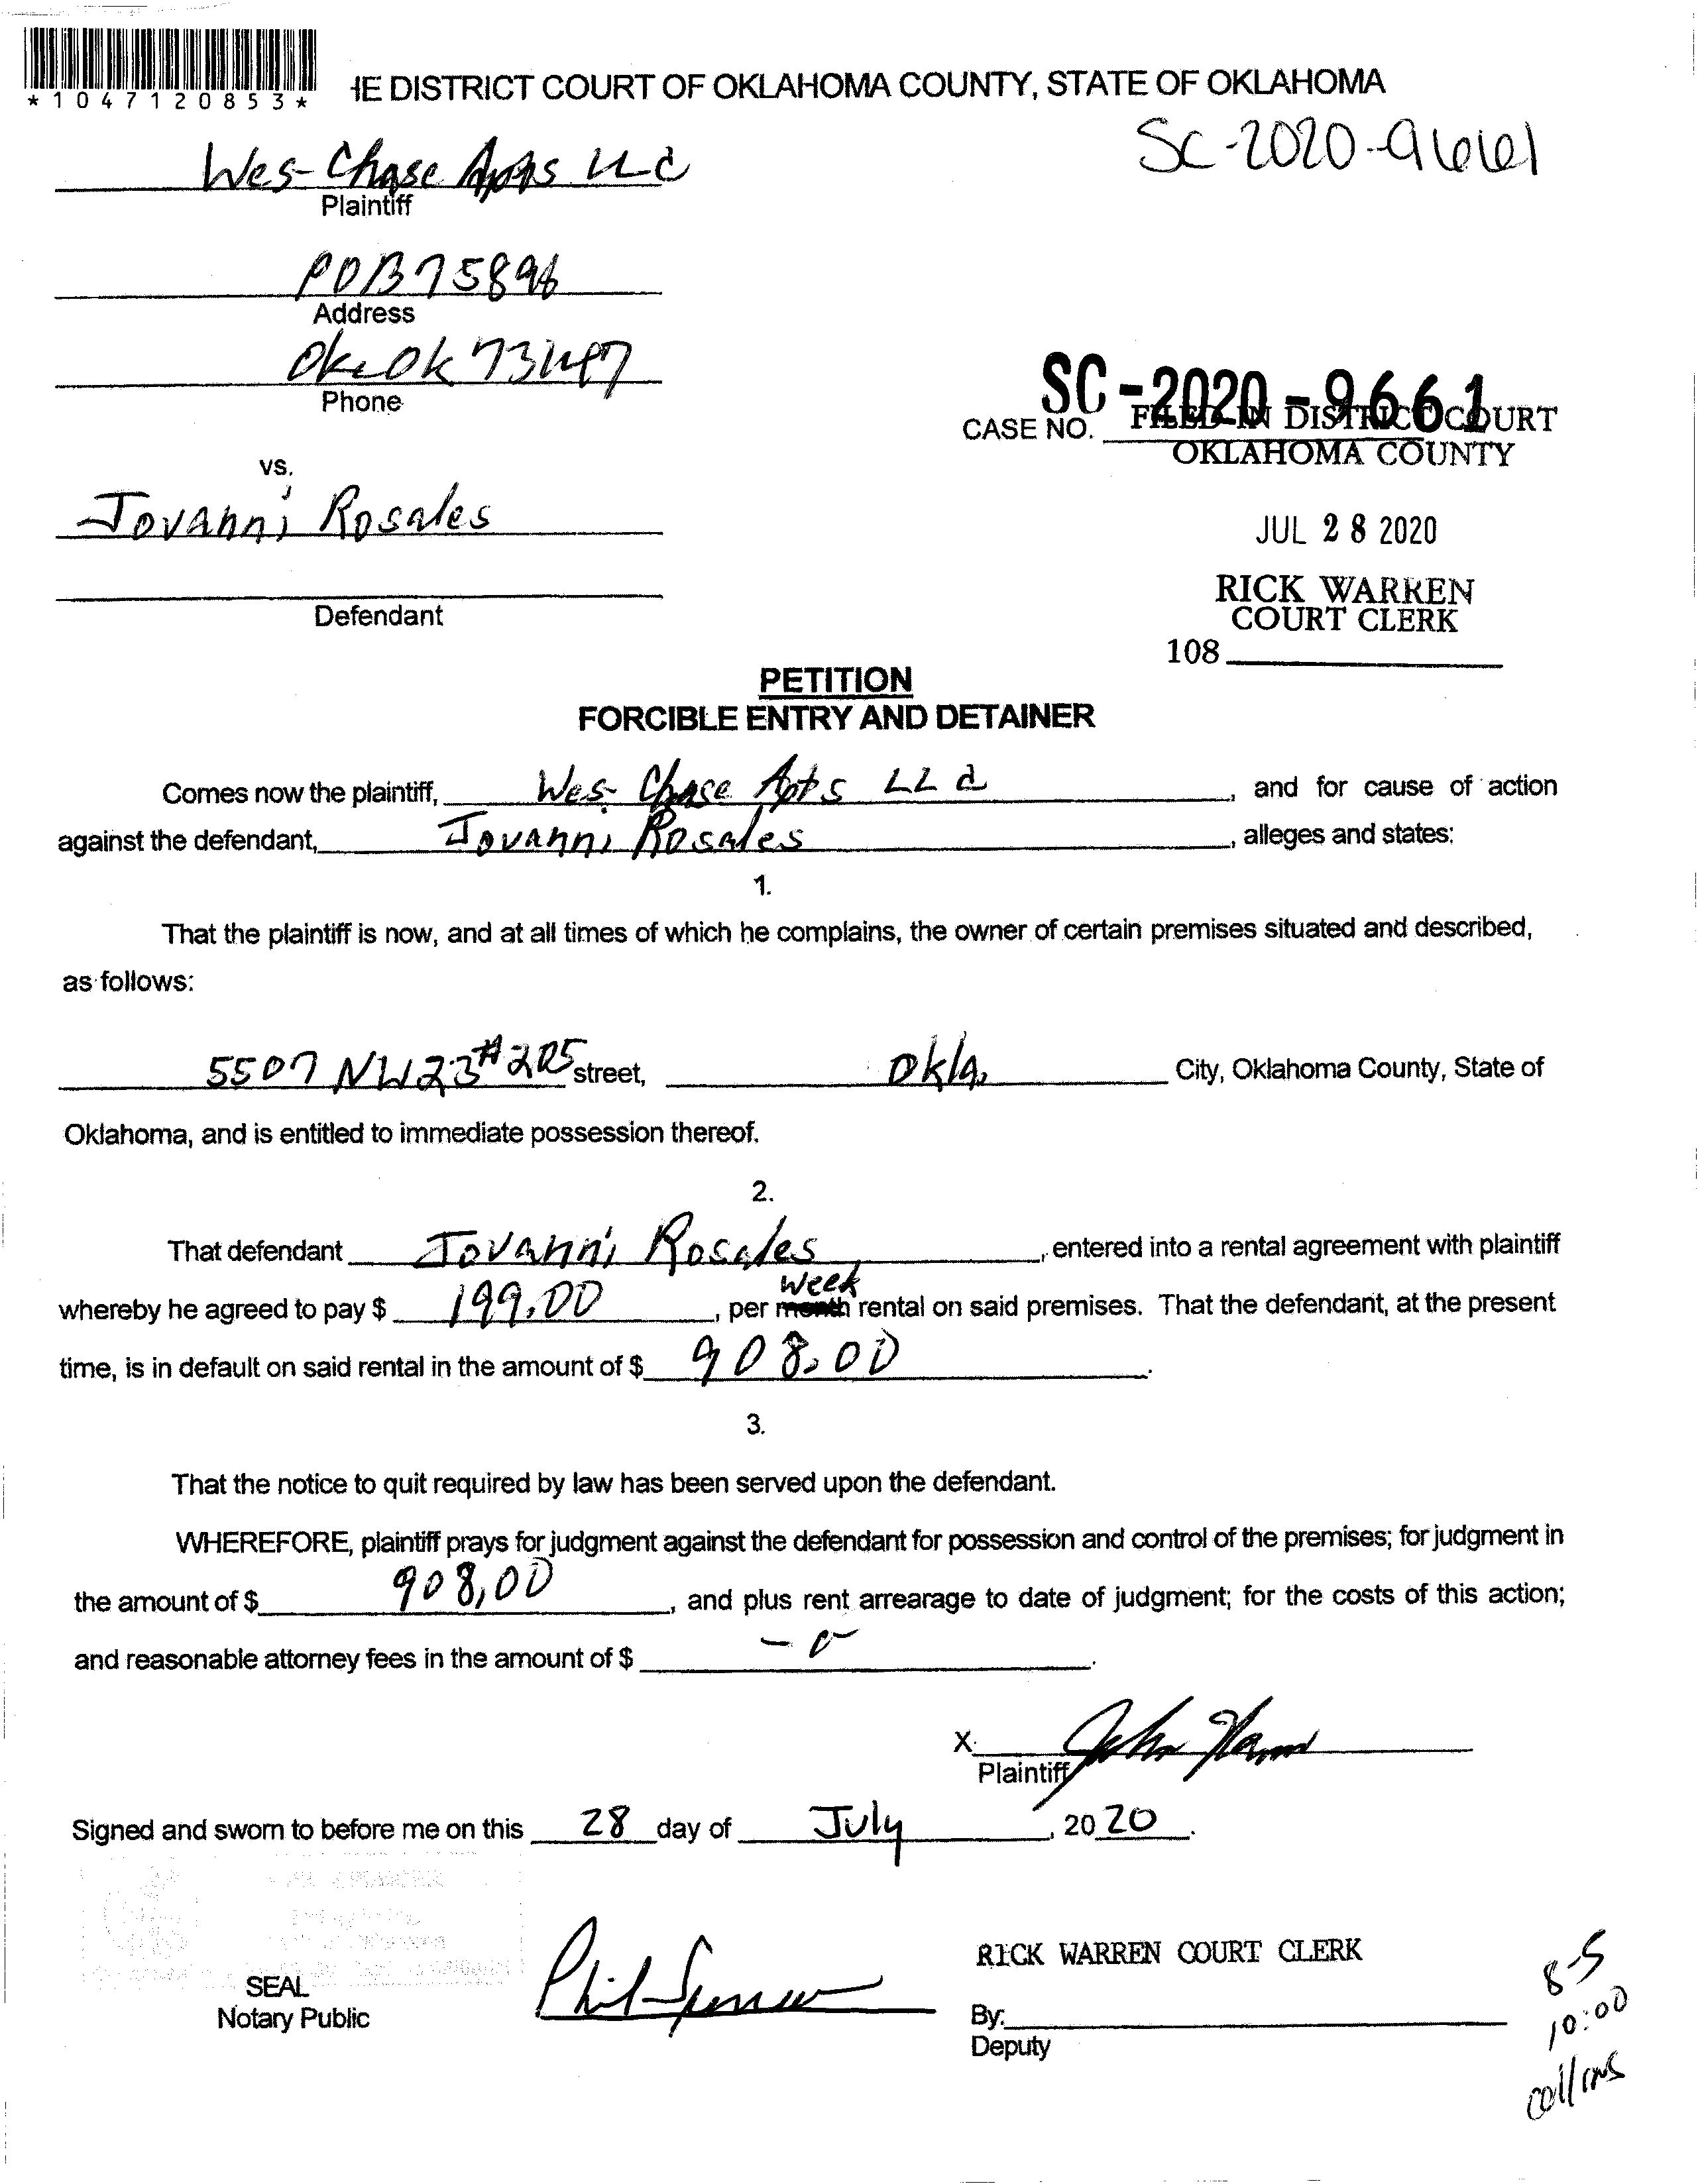 *1047120853*
HE DISTRICT COURT OF OKLAHOMA COUNTY, STATE OF OKLAHOMA
SC-2020-9661
Wes-Chase Apts LLC
Plaintiff
POB 75896
Address
Okc Ok 73147
Phone
SC-2020-9661
CASE NO.
FILED IN DISTRICT COURT
OKLAHOMA COUNTY
vs.
Jovanni Rosales
JUL 28 2020
RICK WARREN
COURT CLERK
Defendant
108
PETITION
FORCIBLE ENTRY AND DETAINER
Comes now the plaintiff, Wes-Chase Apts LLC, and for cause of action
against the defendant, Jovanni Rosales, alleges and states:
1.
That the plaintiff is now, and at all times of which he complains, the owner of certain premises situated and described,
as follows:
5507 NW 23 #205 street, Okla. City, Oklahoma County, State of
Oklahoma, and is entitled to immediate possession thereof.
2.
That defendant Jovanni Rosales, entered into a rental agreement with plaintiff
week
whereby he agreed to pay $ 199.00, per month rental on said premises. That the defendant, at the present
time, is in default on said rental in the amount of $ 908.00.
3.
That the notice to quit required by law has been served upon the defendant.
WHEREFORE, plaintiff prays for judgment against the defendant for possession and control of the premises; for judgment in
the amount of $ 908,00, and plus rent arrearage to date of judgment; for the costs of this action;
and reasonable attorney fees in the amount of $ -0-.
X
Plaintiff
Signed and sworn to before me on this 28 day of July, 2020.
RICK WARREN COURT CLERK
SEAL
Notary Public
By:
Deputy
8-5
10:00
collins